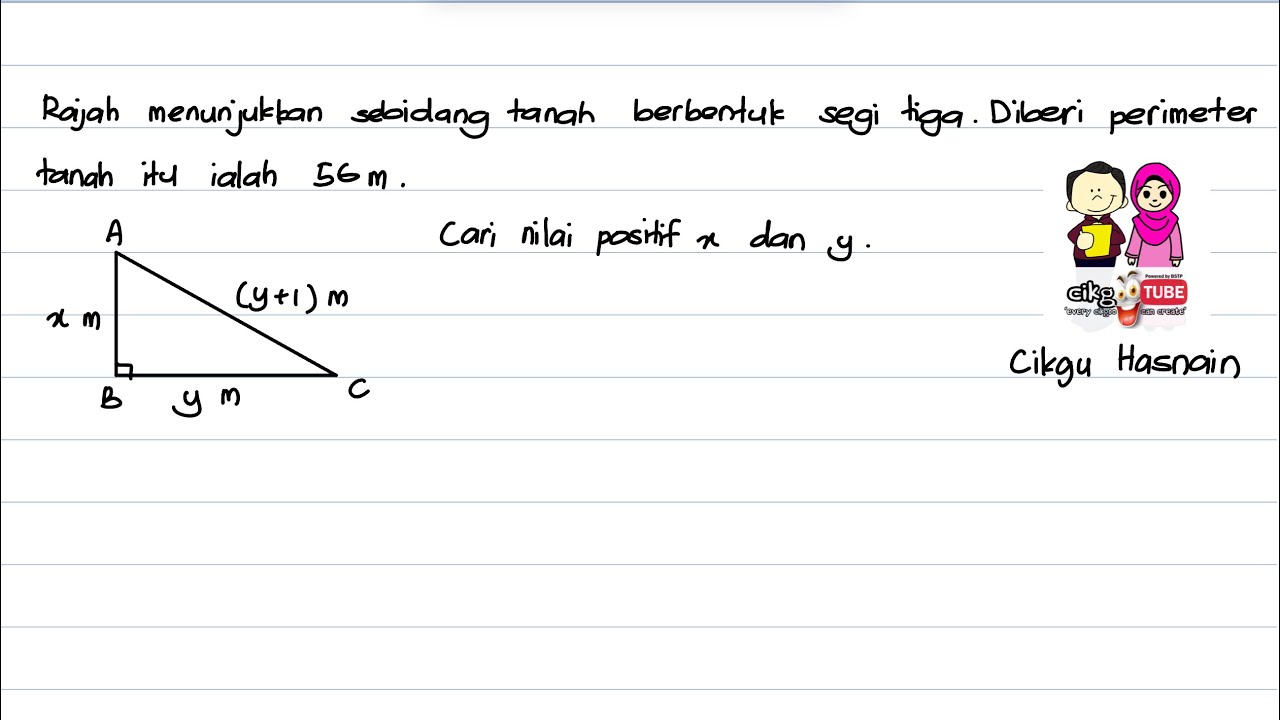 Rajah menunjukkan sebidang tanah berbentuk segi tiga. Diberi perimeter
tanah itu ialah 56 m.
Cari nilai positif x dan y.
A
(y+1) m
x m
B
y m
C
Powered by BSTP
cikgooTUBE
"every cikgoo can create"
Cikgu Hasnain